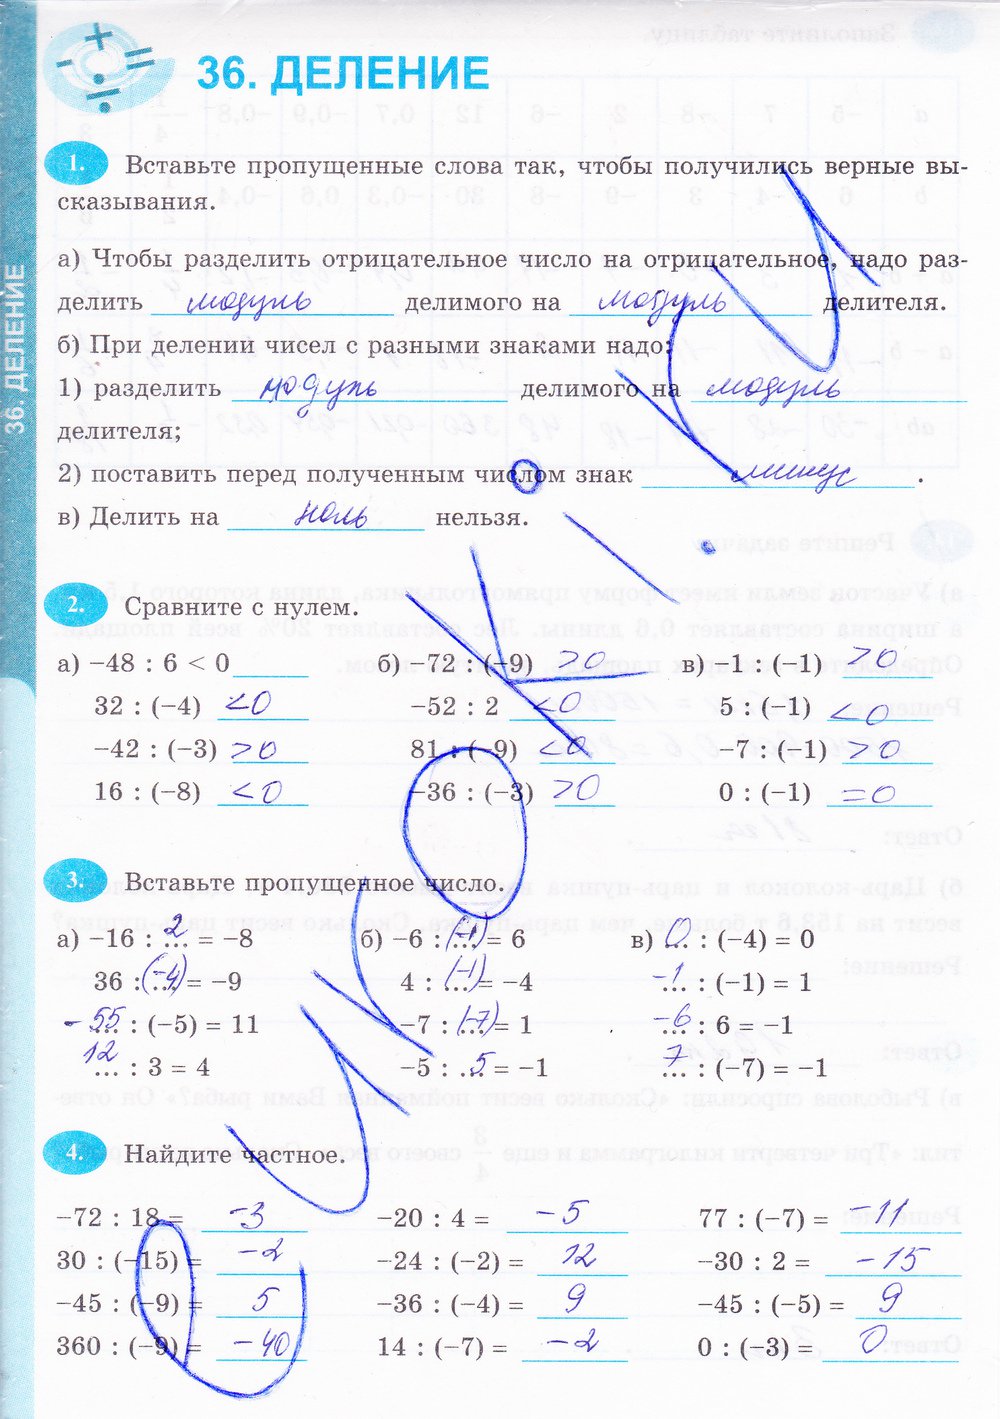 36. ДЕЛЕНИЕ
36. ДЕЛЕНИЕ
1. Вставьте пропущенные слова так, чтобы получились верные вы-
сказывания.
а) Чтобы разделить отрицательное число на отрицательное, надо раз-
делить модуль делимого на модуль делителя.
б) При делении чисел с разными знаками надо:
1) разделить модуль делимого на модуль
делителя;
2) поставить перед полученным числом знак минус.
в) Делить на ноль нельзя.
2. Сравните с нулем.
а) −48 : 6 < 0 б) −72 : (−9) >0 в) −1 : (−1) >0
32 : (−4) <0 −52 : 2 <0 5 : (−1) <0
−42 : (−3) >0 81 : (−9) <0 −7 : (−1) >0
16 : (−8) <0 −36 : (−3) >0 0 : (−1) =0
3. Вставьте пропущенное число.
а) −16 : 2 = −8 б) −6 : (−1) = 6 в) 0 : (−4) = 0
36 : (−4) = −9 4 : (−1) = −4 −1 : (−1) = 1
−55 : (−5) = 11 −7 : (−7) = 1 −6 : 6 = −1
12 : 3 = 4 −5 : 5 = −1 7 : (−7) = −1
4. Найдите частное.
−72 : 18 = −3 −20 : 4 = −5 77 : (−7) = −11
30 : (−15) = −2 −24 : (−2) = 12 −30 : 2 = −15
−45 : (−9) = 5 −36 : (−4) = 9 −45 : (−5) = 9
360 : (−9) = −40 14 : (−7) = −2 0 : (−3) = 0